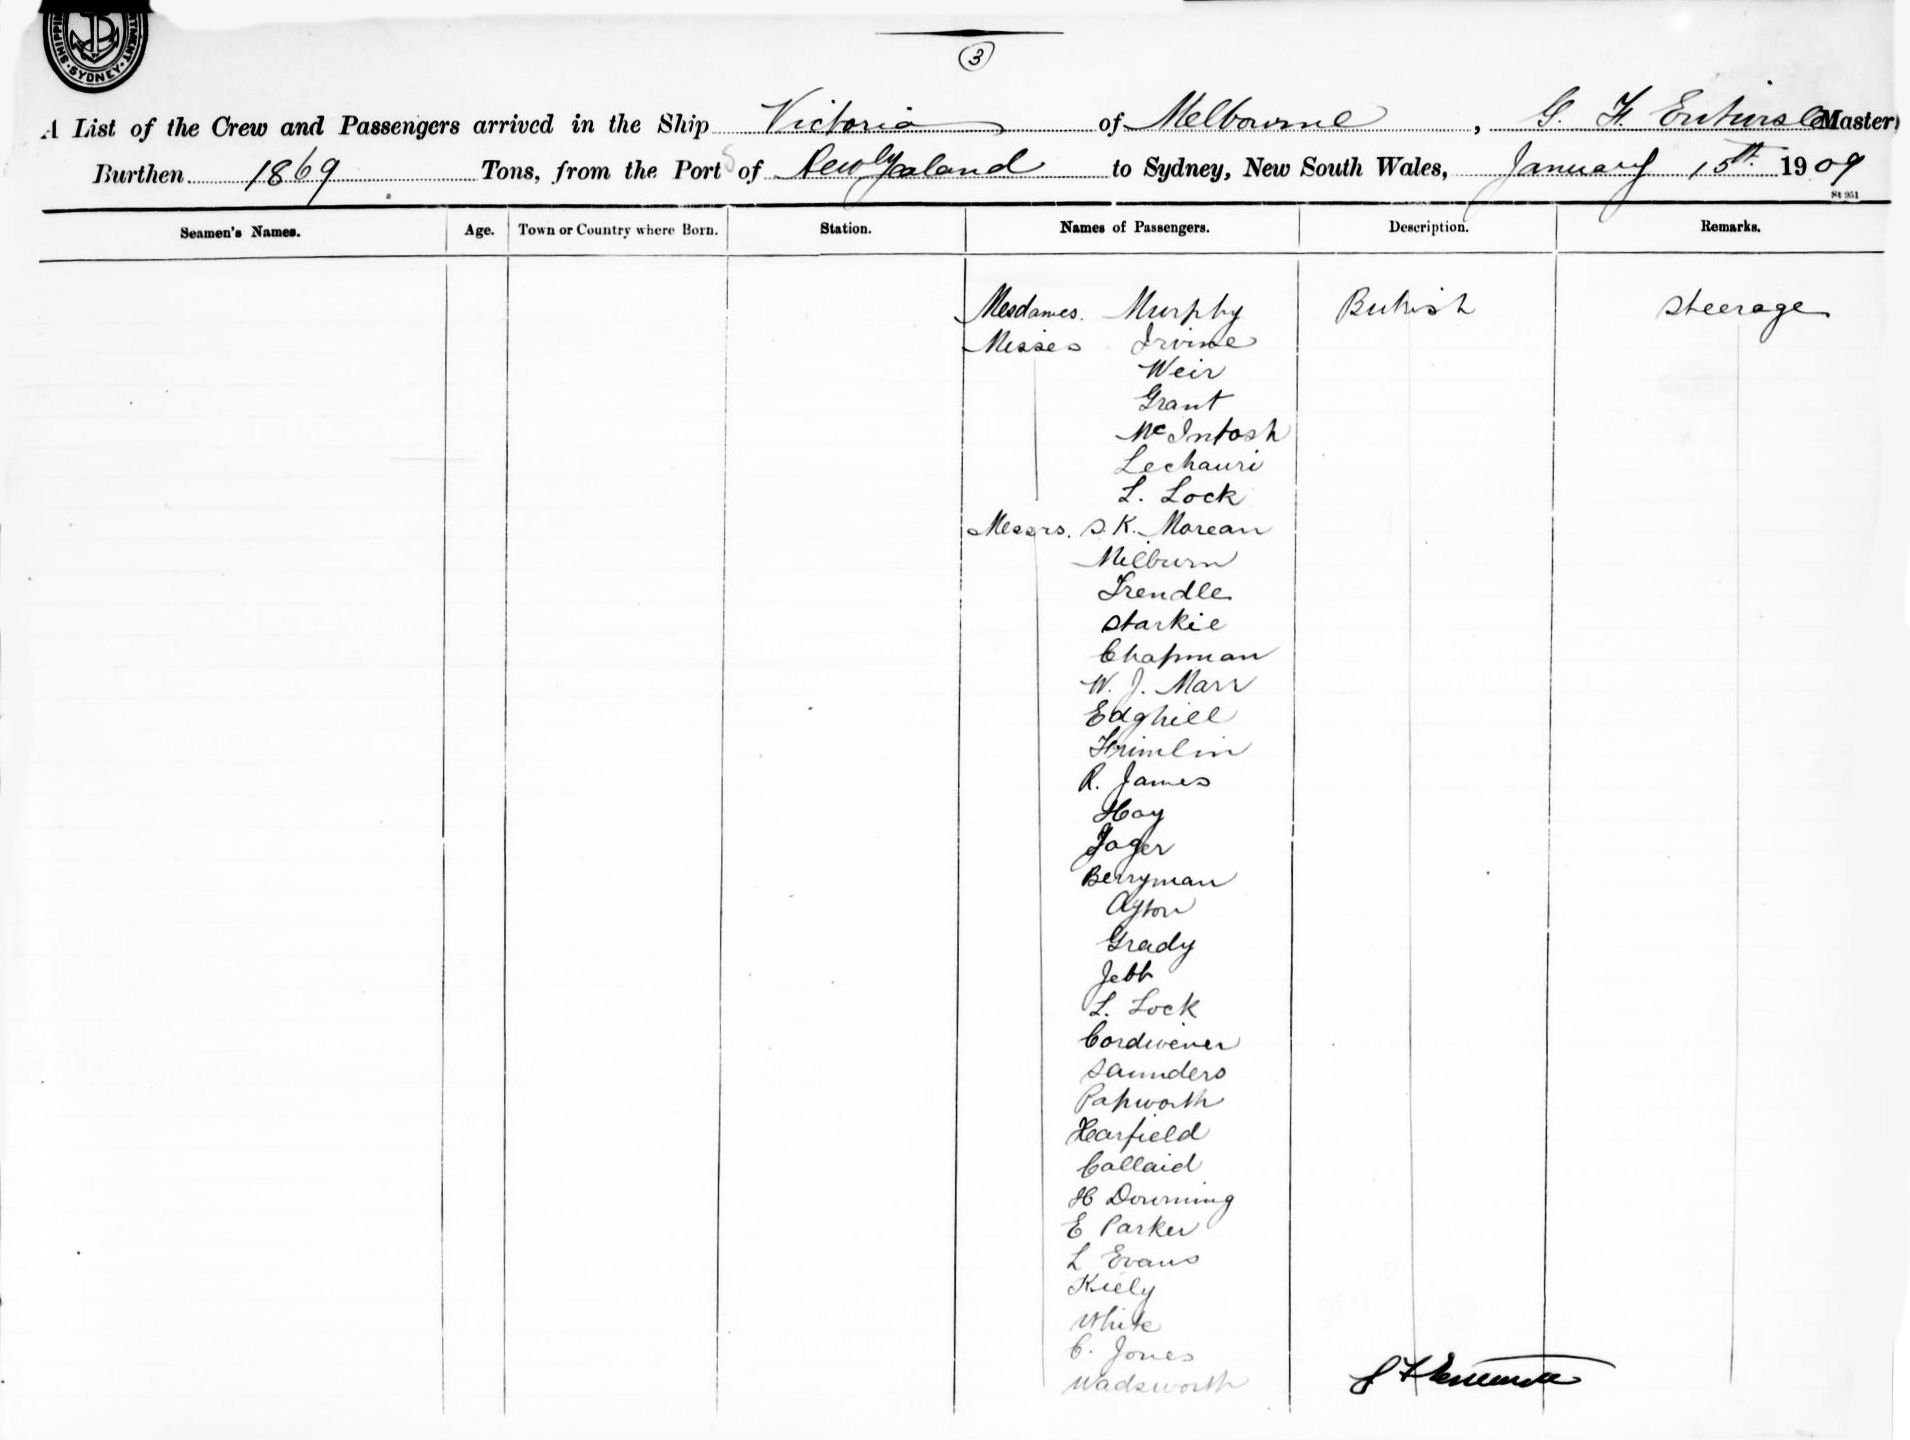 SHIPPING
SYDNEY
3
A List of the Crew and Passengers arrived in the Ship Victoria of Melbourne, G. F. Master
Burthen 1869 Tons, from the Port of New Zealand to Sydney, New South Wales, January 15th 1909
St 951
Seamen's Names. Age. Town or Country where Born. Station. Names of Passengers. Description. Remarks.
Mesdames. Murphy British Steerage
Misses Irvine
Weir
Grant
McIntosh
Lechauri
L. Lock
Messrs. S. K. Morean
Milburn
Trendle
Starkie
Chapman
W. J. Marr
Edghill
R. James
Hay
Jager
Berryman
Ayton
Grady
Jebb
L. Lock
Cordwener
Saunders
Papworth
Harfield
Callaid
H Downing
E Parker
L Evans
Kiely
White
C. Jones
Wadsworth